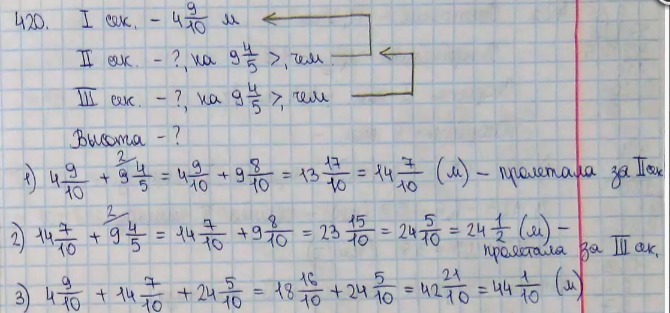 420. I сек. - 4 9/10 м
II сек. - ?, на 9 4/5 >, чем
III сек. - ?, на 9 4/5 >, чем
Высота - ?
1) 4 9/10 + 9 4/5 (2 = 4 9/10 + 9 8/10 = 13 17/10 = 14 7/10 (м) - пролетала за II сек
2) 14 7/10 + 9 4/5 (2 = 14 7/10 + 9 8/10 = 23 15/10 = 24 5/10 = 24 1/2 (м) -
пролетала за III сек.
3) 4 9/10 + 14 7/10 + 24 5/10 = 18 16/10 + 24 5/10 = 42 21/10 = 44 1/10 (м)